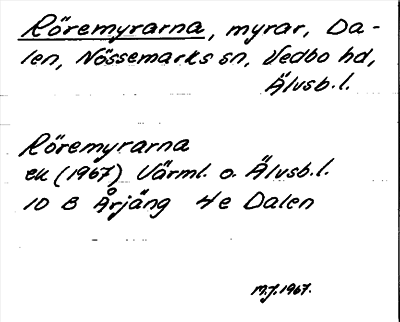 Röremyrarna, myrar, Da-
len, Nössemarks sn, Vedbo hd,
Älvsb.l.
Röremyrarna
ek (1967) Värml. o. Älvsb.l.
10 B Årjäng 4e Dalen
M.J.1967.